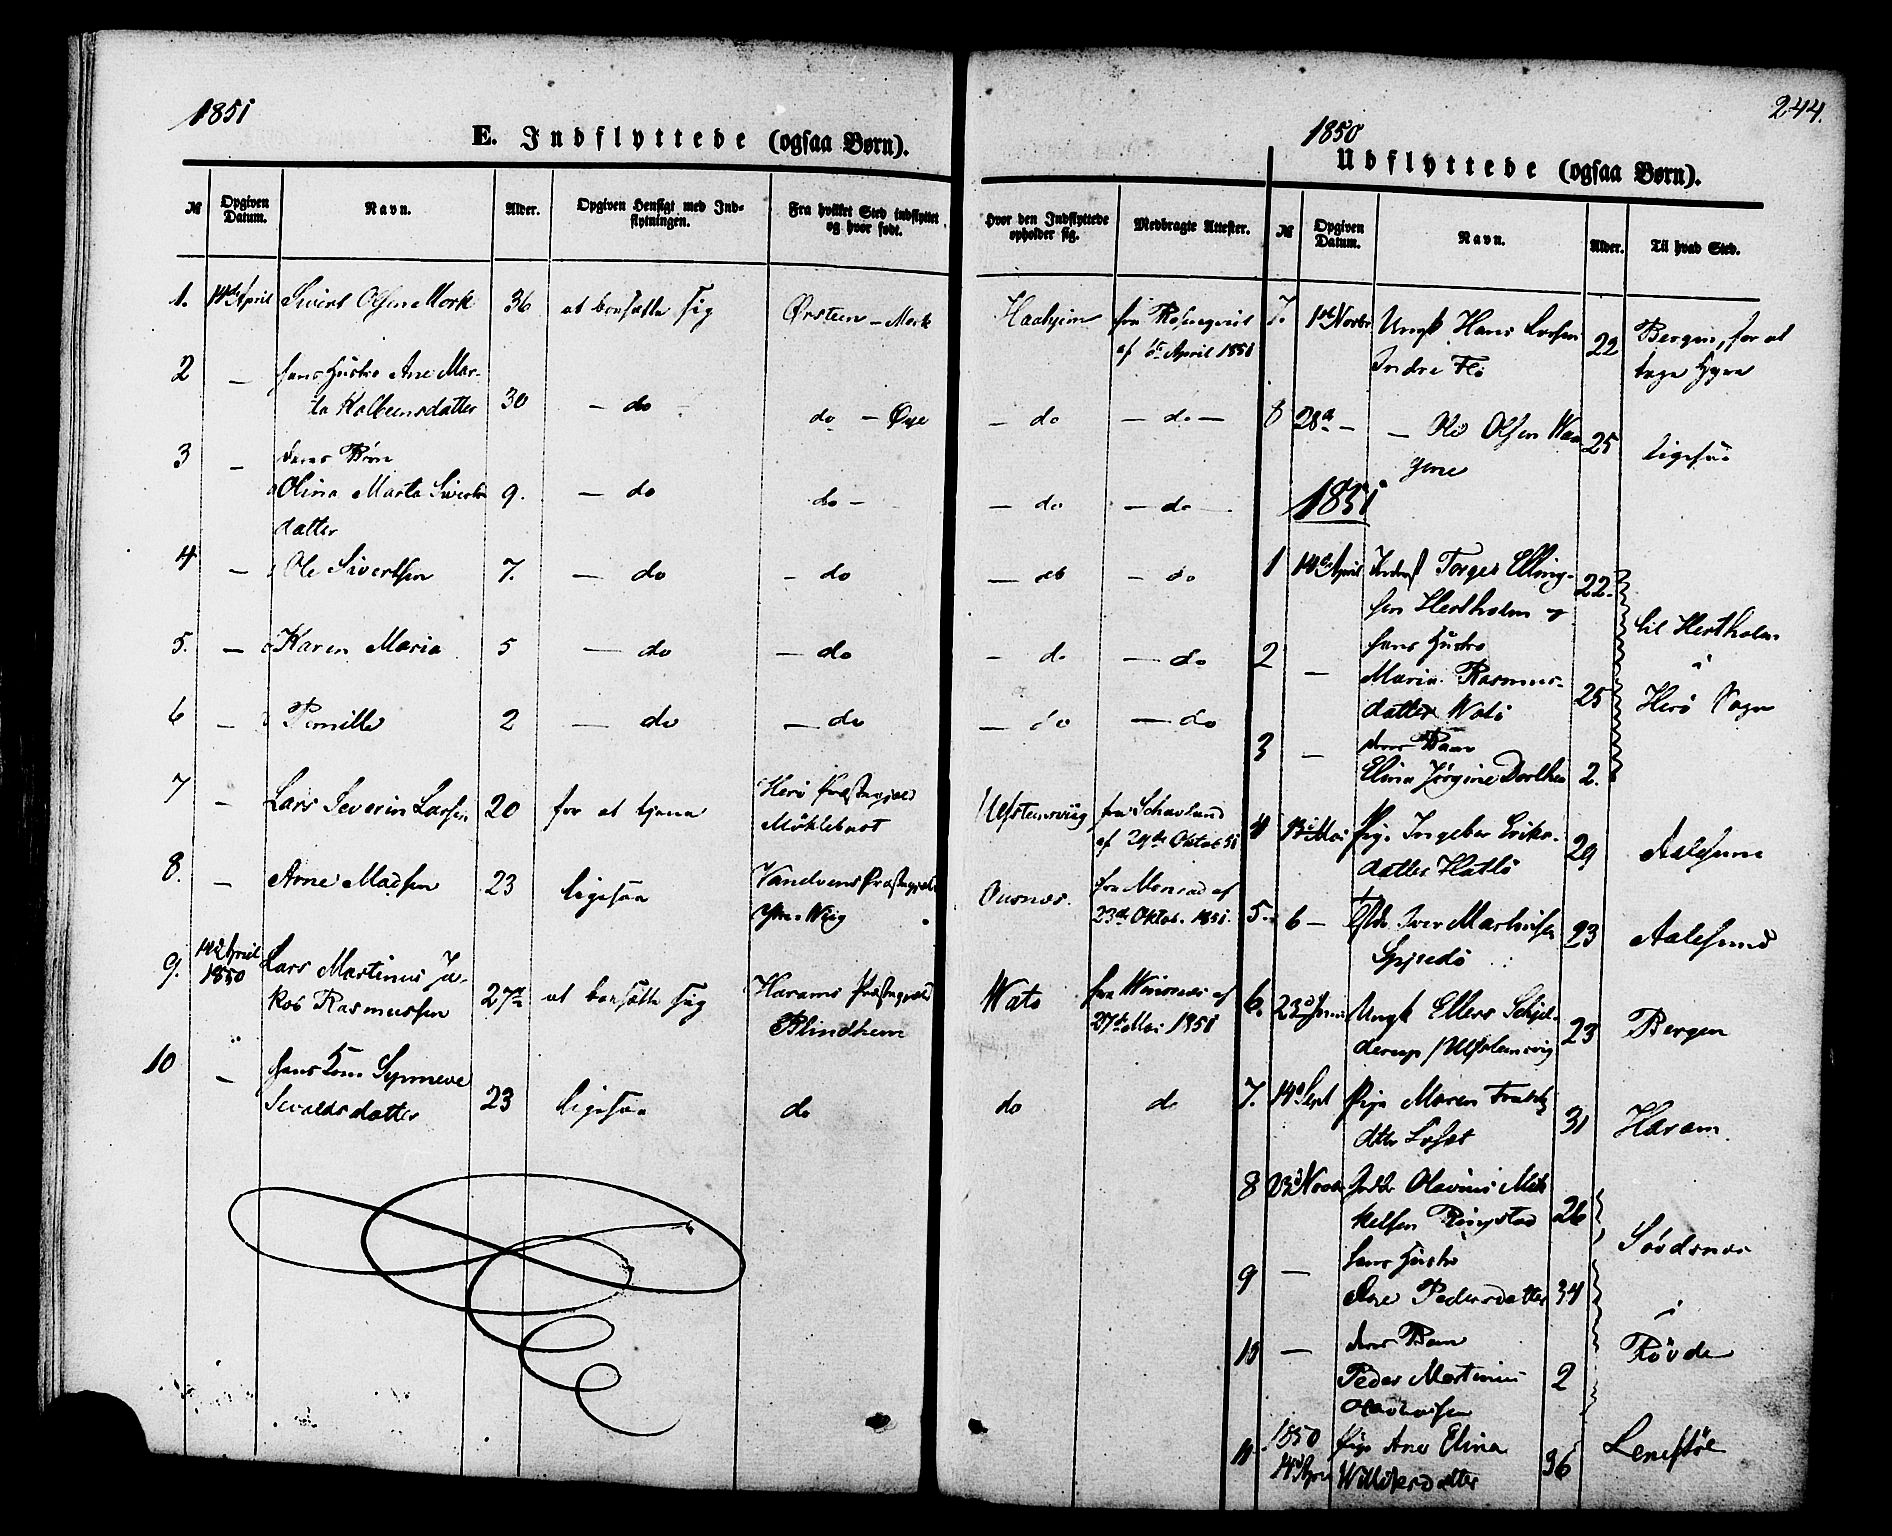 1851
E. Indflyttede (ogsaa Børn).
№ Opgiven Datum. Navn. Alder. Opgiven Hensigt med Indflytningen. Fra hvilket Sted indflyttet og hvor født. Hvor den Indflyttede opholder sig. Medbragte Attester.
1. 14de April Sivert Olsen Mork 36 at bosætte sig Ørsteen - Mork Haahjem fra Rosinqvist
af April 1851
2 - hans Hustro Ane Mar-
ta Kolbeensdatter 30 - do - do - Øye - do - do -
3 - deres Børn
Olina Marta Siverts 9. - do do - - do - do -
datter
4 - Ole Sivertsen 7. - do - do - do - do
5. - Karen Maria 5 - do - do - do - do
6 - Pernille 2 - do - do - do - do
7 - Lars Severin Larsen 20 for at tjene Herö Præstegjeld
Möklebust Ulfsteensviig fra Schavland
af 29de Oktob 51
8. - Arne Madsen 23 ligesaa Vandvens Præstegjeld
Ytre Wiig fra Monrad af
23de Oktob. 1851.
9. 14de April
1850 Lars Martinus Ja-
kob Rasmussen 27 at bosætte sig Harams Præstegjeld
Blindhem Watö fra
27de Mai 1851
10 - hans Kone Synneve
Sevaldsdatter 23 ligesaa do do do
244.
1850
Udflyttede (ogsaa Børn).
№ Opgiven Datum. Navn. Alder. Til hvad Sted.
7. 1ste Novbr Ungk Hans Larsen
Indre Flö 22 Bergen, for at
tage Hyre
8 28de - - Ole Olsen Waa
gene 25 ligesaa
1851
1 14de April Inderst Torger Elling-
sen Hertholm og 22.
2 - hans Hustro
Maria Rasmus-
datter Watö 25 til Hertholm
i
Herö Sogn
3 - deres Barn
Elina Jörgine Dorthea 2.
4 Mai Pige Ingeber Eriks-
datter Hatlö 29 Aalesund
5. 6 - Iver Martinsen 23 Aalesund
6. 23de Juni Ungk Ellers Schjel-
derup /Ulfsteensvig 23 Bergen
7. 14de Sept Pige Maren Frantz
dtter Løset 31 Haram.
8 23de Novbr Olavius Mik
kelsen Ringstad 26
9 - hans Hustro
Ane Pedersdatter 34 Søvdsnes
i
Røvde
10 - deres Barn
Peder Martinus 2
Olaviusen
11. 1850
14de April Pige Ane Elina
36